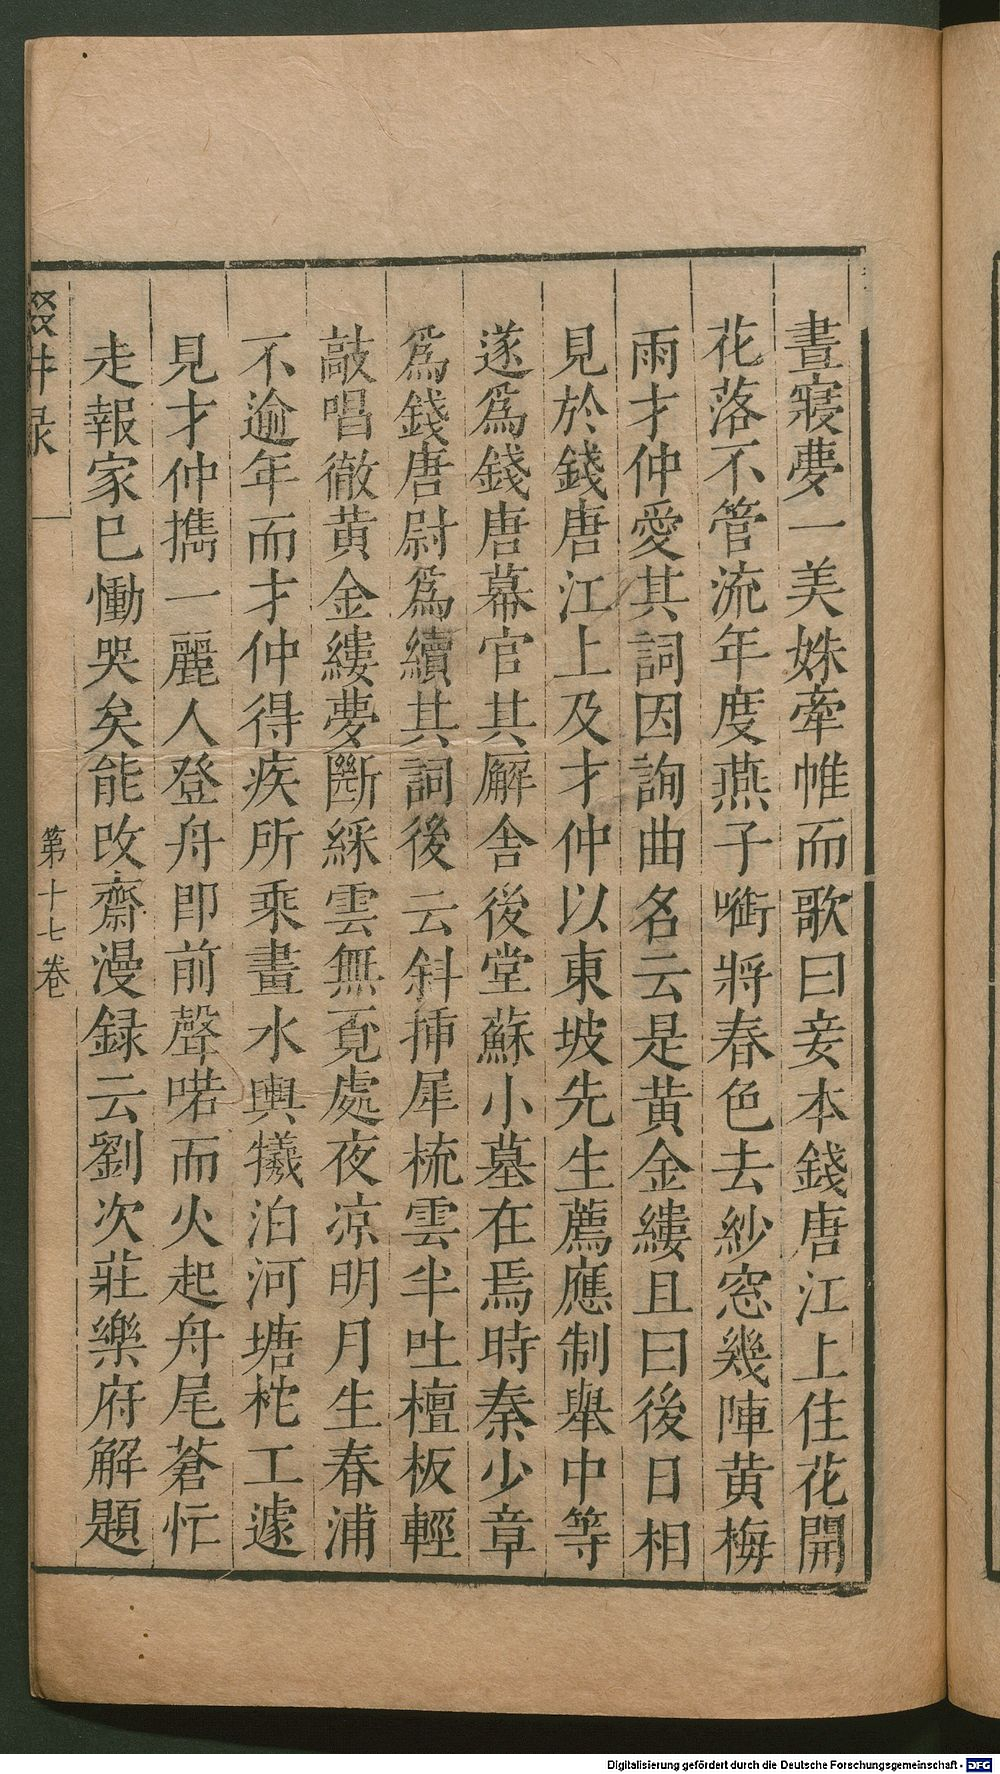 晝寢夢一美姝牽帷而歌曰妾本錢唐江上住花開
花落不管流年度燕子啣將春色去紗窓幾陣黄梅
雨才仲愛其詞因詢曲名云是黄金縷且曰後日相
見於錢唐江上及才仲以東坡先生薦應制舉中等
遂爲錢唐幕官其廨舍後堂蘇小墓在焉時秦少章
爲錢唐尉爲續其詞後云斜揷犀梳雲半吐檀板輕
敲唱徹黄金縷夢斷綵雲無覔處夜凉明月生春浦
不逾年而才仲得疾所乘畫水輿艤泊河塘柁工遽
見才仲擕一麗人登舟即前聲喏而火起舟尾蒼忙
走報家已慟哭矣能改齋漫録云劉次莊樂府解題
第十七卷
Digitalisierung gefördert durch die Deutsche Forschungsgemeinschaft - DFG